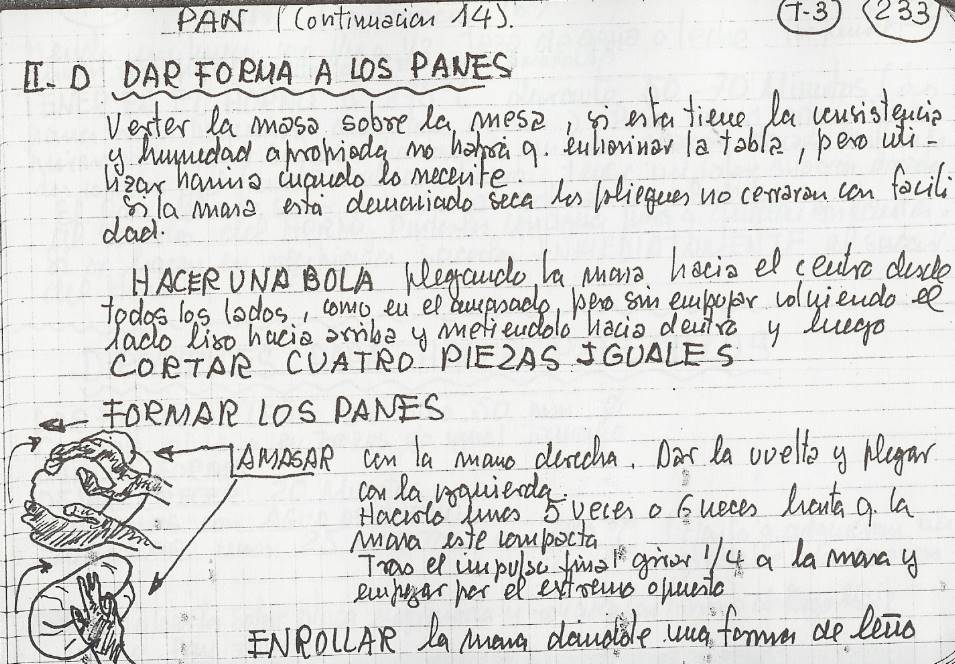 PAN (Continuacion 14). T-3 233
II. D DAR FORMA A LOS PANES
Verter la masa sobre la mesa, si esta tiene la consistencia
y humedad apropiada no habra q. enharinar la tabla, pero uti-
lizar harina cuando lo necesite.
Si la masa esta demasiado seca los pliegues no cerraran con facili
dad.
HACER UNA BOLA plegando la masa hacia el centro desde
todos los lados, como en el amasado, pero sin empujar volviendo el
lado liso hacia arriba y metiendolo hacia dentro y luego
CORTAR CUATRO PIEZAS IGUALES
FORMAR LOS PANES
AMASAR con la mano derecha. Dar la vuelta y plegar
con la izquierda.
Hacerlo unas 5 veces o 6 veces hasta q. la
masa este compacta
Tras el impulso final girar 1/4 a la masa y
empezar por el extremo opuesto
ENROLLAR la masa dandole una forma de leño